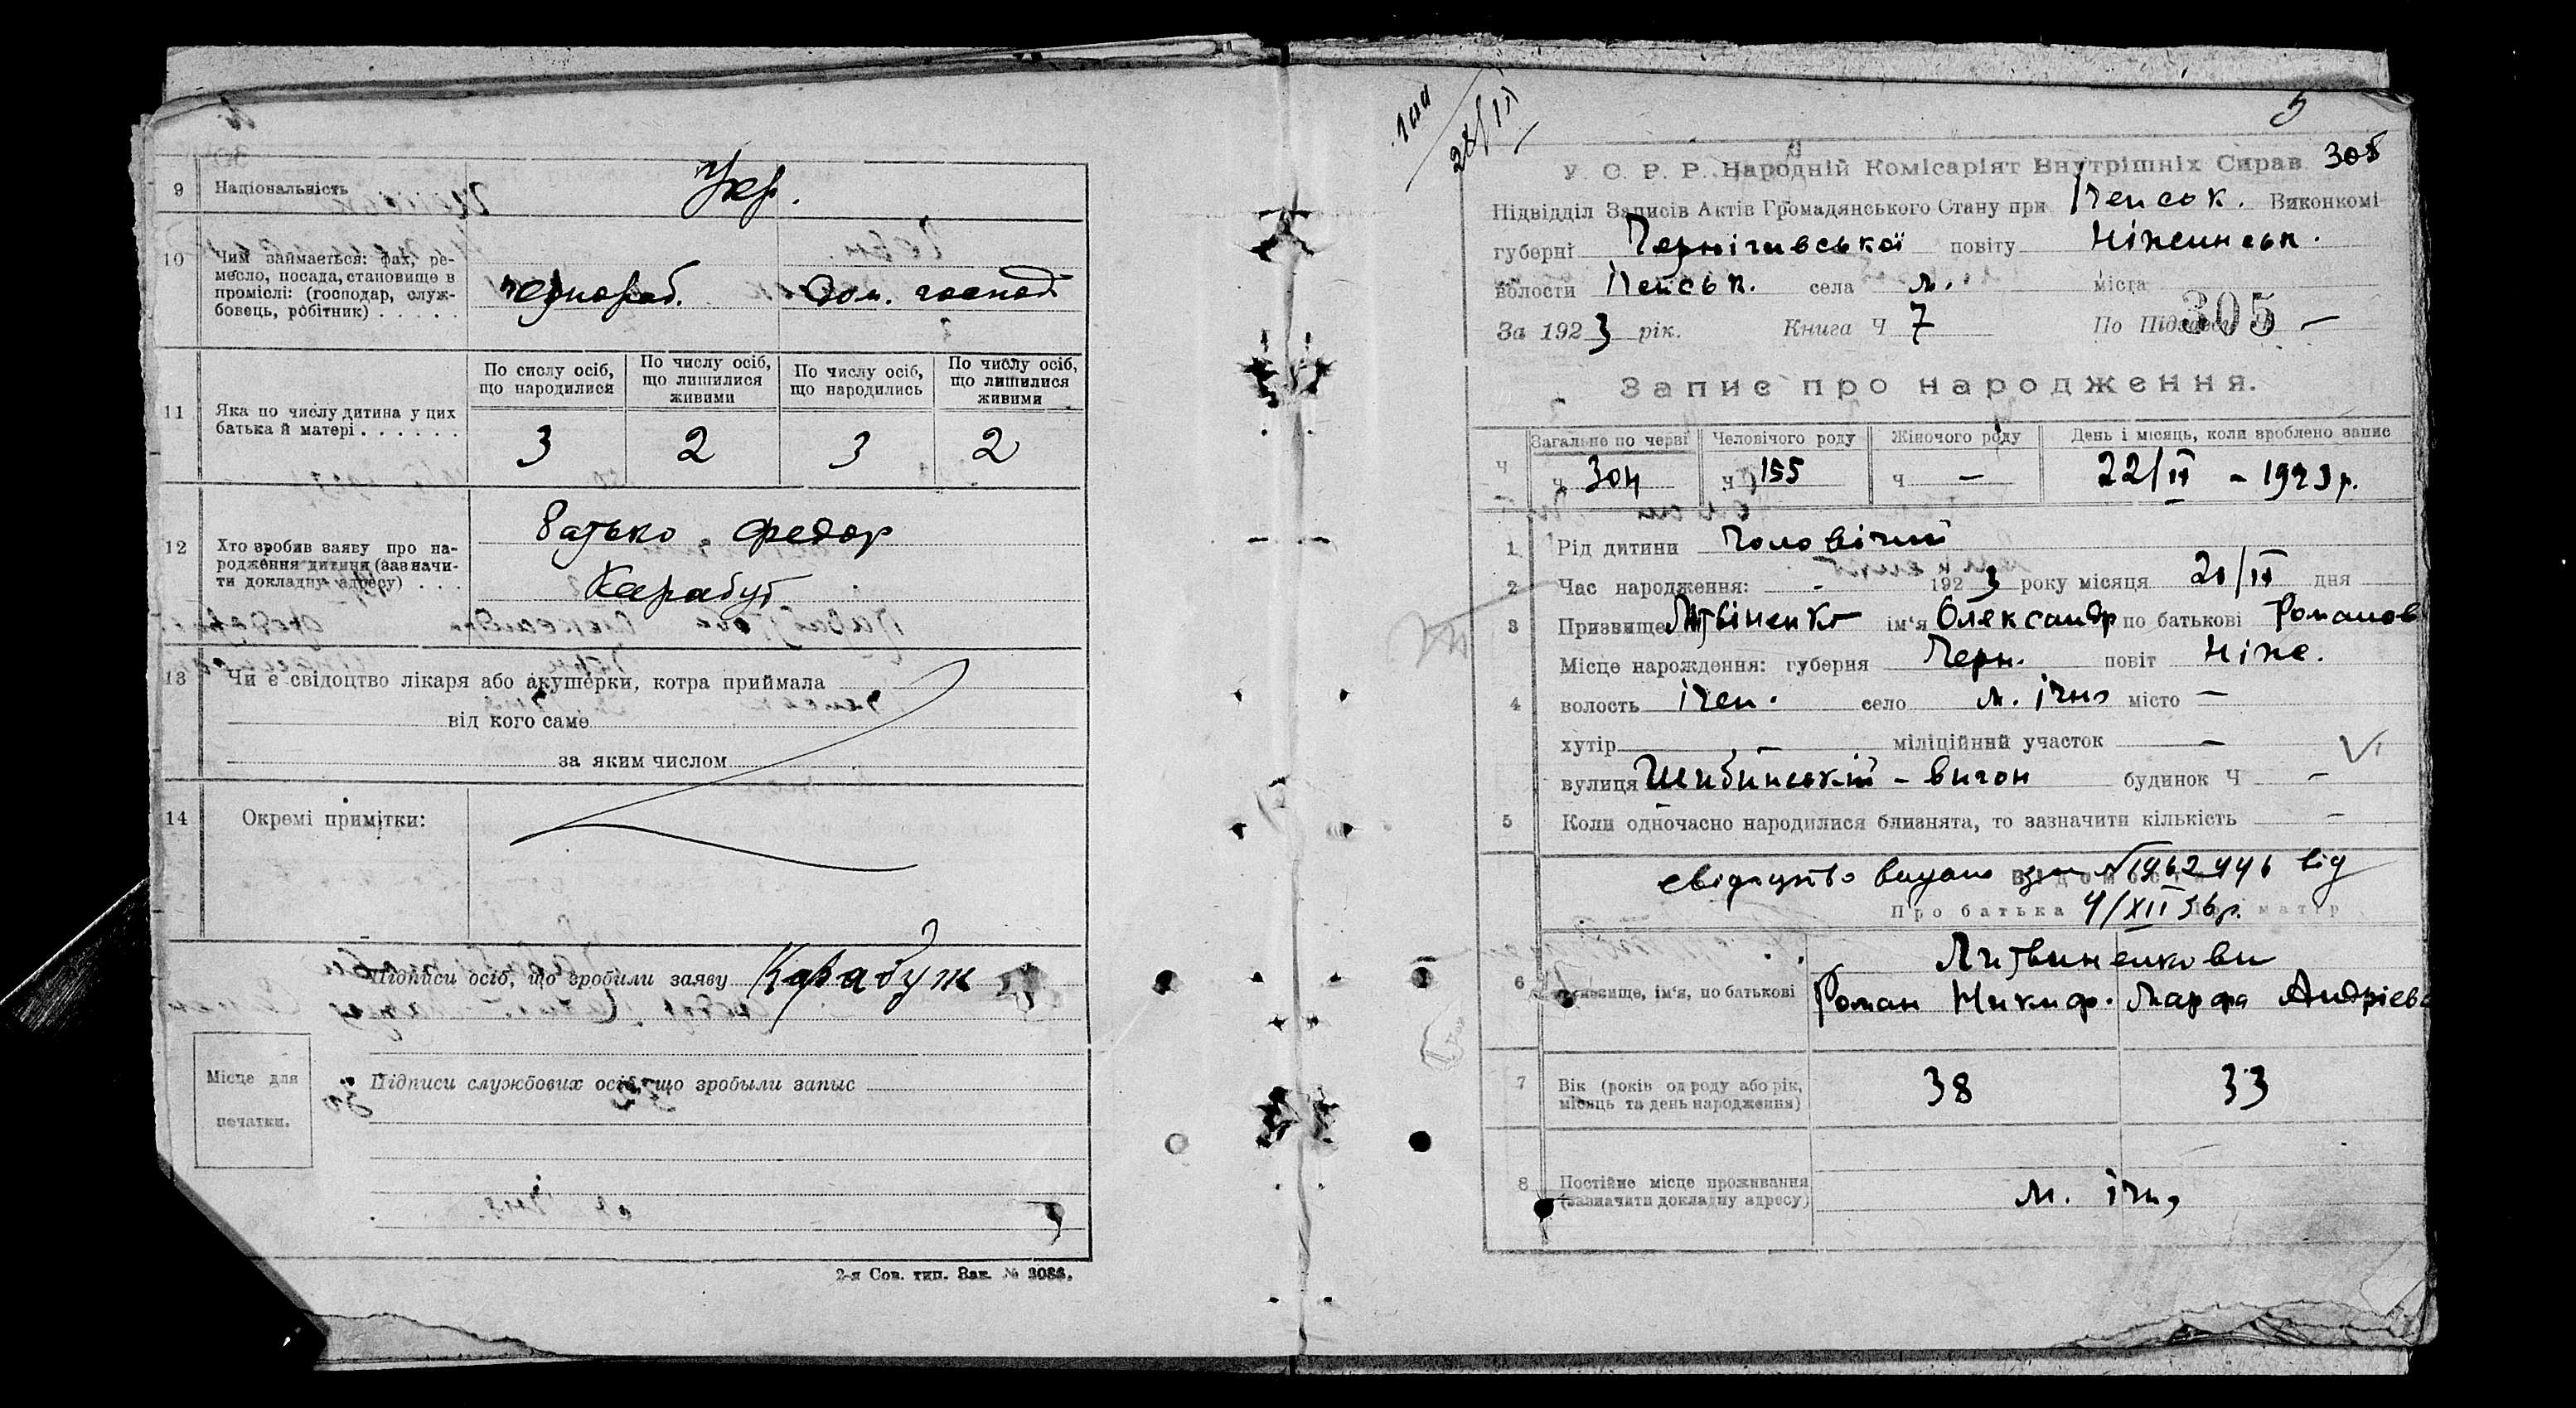 9 Національність Укр.
10 Чим займається: фах, ре-
месло, посада, становище в
проміслі: (господар, служ-
бовець, робітник) . . . . .
чорнораб. Дом. господ.
11 Яка по числу дитина у цих
батька й матері . . . . . .
По сислу осіб, що народилися
По числу осіб, що лишилися живими
По числу осіб, що народились
По числу осіб, що лишилися живими
3 2 3 2
12 Хто зробив заяву про на-
родження дитини (зазначи-
ти докладну адресу) . . .
Батько Федор
Карабут
13 Чи є свідоцтво лікаря або акушерки, котра приймала
від кого саме
за яким числом
14 Окремі примітки:
Підписи осіб, що зробили заяву Карабут
Місце для
печатки.
Підписи службових осіб, що зробыли запыс
2-я Сов. тип. Зак. № 3086.
28/IV
5
305
У. С. Р. Р. Народній Комісаріят Внутрішніх Справ
Підвідділ Записів Актів Громадянського Стану при Іченськ. Виконкомі
губерні Чернігивської повіту Ніжинськ.
волости Іченськ. села м. міста
За 1923 рік. Книга Ч 7 По Підвідділу 305 —
Запис про народження.
Загальне по черві Человічого роду Жіночого роду День і місяць, коли вроблено запис
Ч ч 304 ч 155 ч — 22/IV - 1923 р.
1 Рід дитини Чоловічий
2 Час народження: - 1923 року місяця 21/IV дня
3 Призвище Литвіненко ім'я Олександр по батькові Романов
4 Місце нарождення: губерня Черн. повіт Ніже.
волость ічен. село м. ічня місто —
хутір — міліційний участок —
вулиця Шибинський - вигон будинок Ч —
5 Коли одночасно народилися близнята, то зазначити кількість —
свідоцтво видано за № 1962446 від
4/XII 56 р.
Відомості
Про батька Про матір
6 Призвище, ім'я, по батькові
Литвиненкови
Роман Никиф. Марфа Андрієва
7 Вік (років од роду або рік,
місяць та день народження)
38 33
8 Постійне місце проживання
(зазначити докладну адресу)
м. ічня